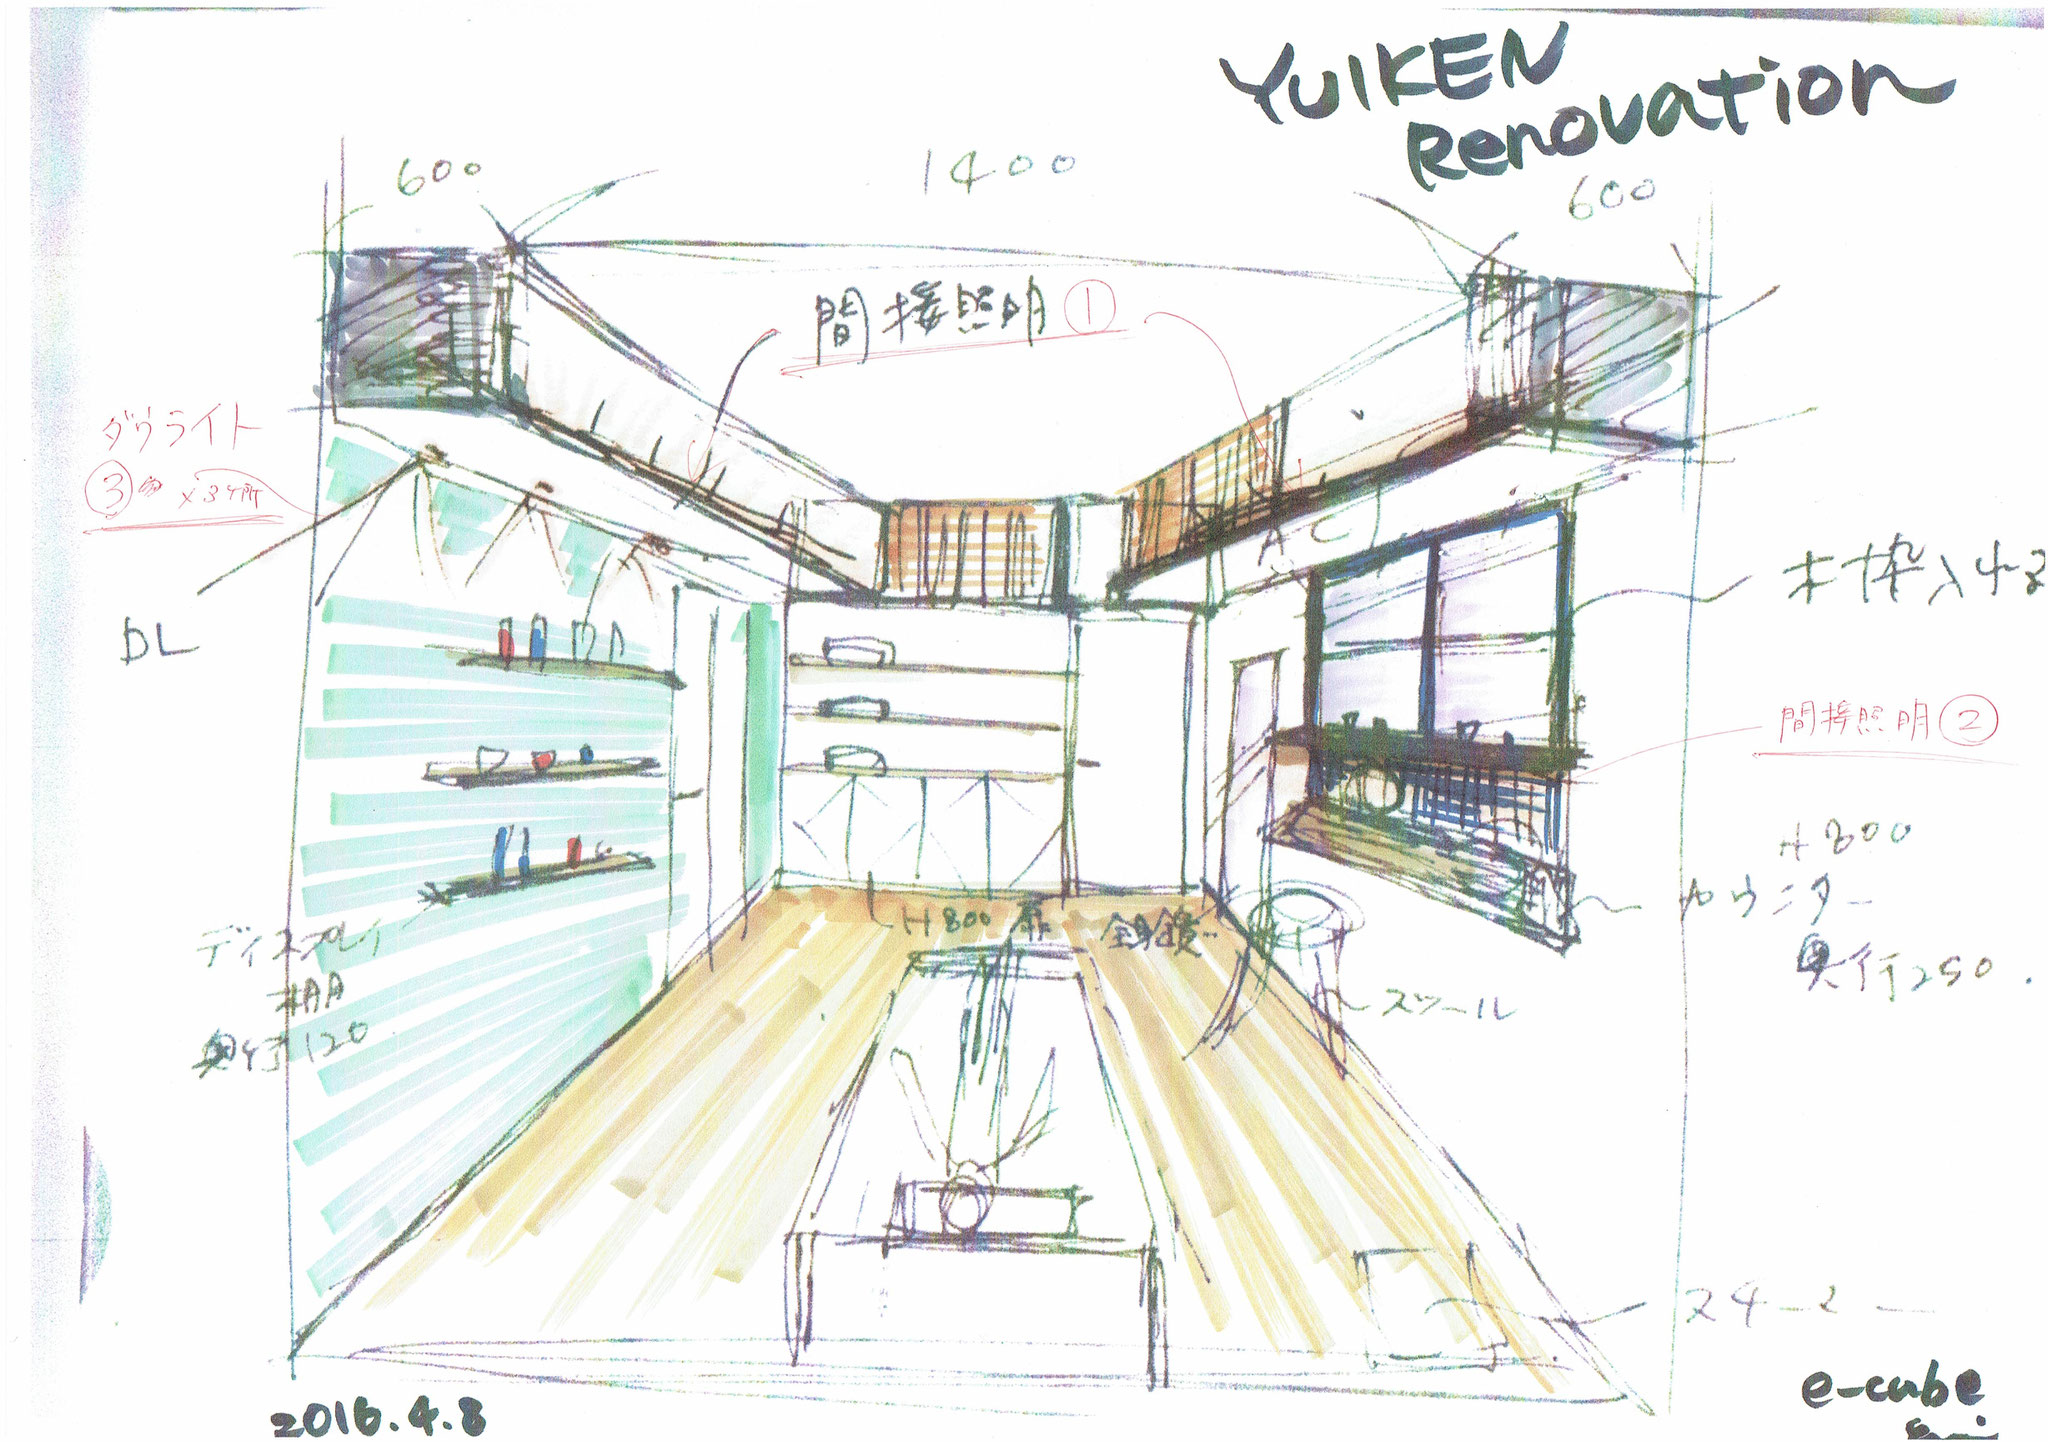 YUIKEN
Renovation
600
1400
600
間接照明①
ダウライト
③
DL
木枠入れる
間接照明②
H800
カウンター
奥行250.
H800扉
ディスプレイ
棚
奥行120
スツール
2016.4.8
e-cube